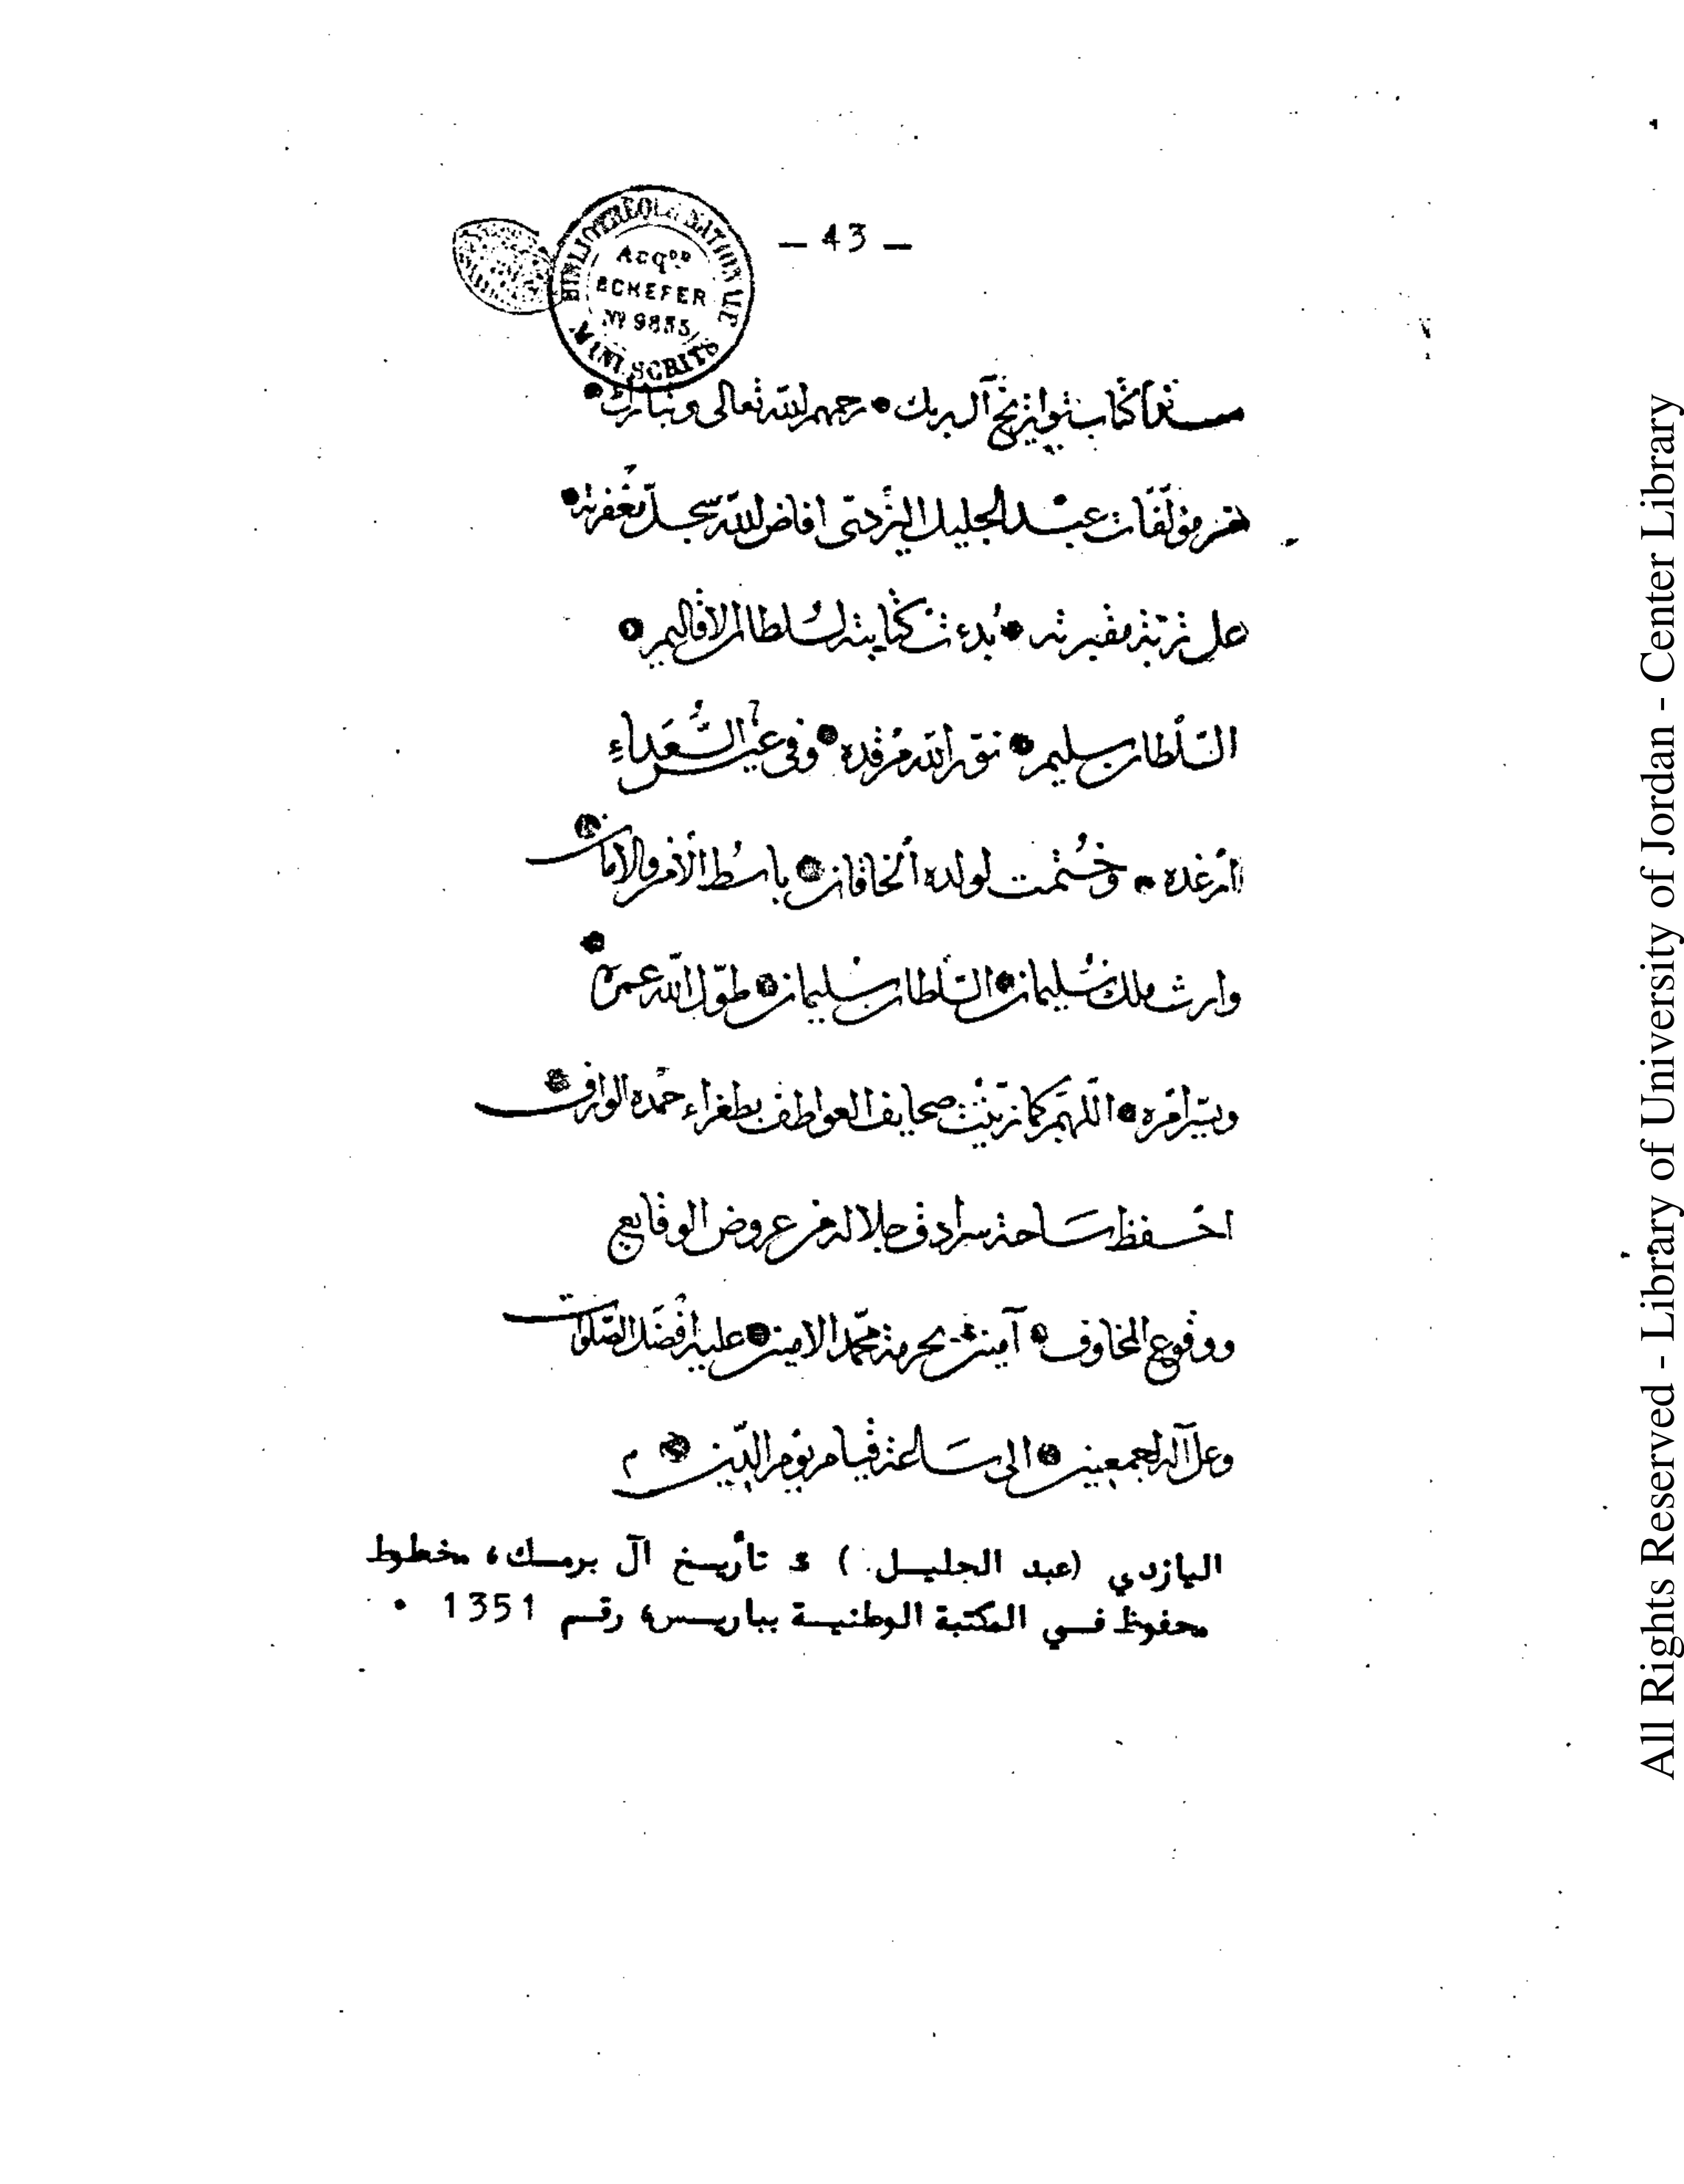 — 43 —
BIBLIOTHEQUE NATIONALE
Acqon
SCHEFER
No 9853
MANUSCRITS
هذا كتاب تواريخ آل برمك رحمهم الله تعالى وتبارك
من مؤلفات عبد الجليل اليزدى افاض الله سجل مغفرته
على تربة مقبرته بُدءت كتابته لسلطان الاقاليم
السّلطان سليم نوّر الله مرقده وفى عيش السُّعَداء
ارغده وخُتمت لولده الخاقان باسُط الأمن والامان
وارث ملك سُليمان السّلطان سليمان طوّل الله عمره
ويسّر امره اللّهمّ كما زيّنت صحايف العواطف بطغراء حمده الوارف
احفظ سَاحة سرادق جلاله من عروض الوقايع
ووقوع المخاوف آمين بحرمة محمّد الامين عليه افضَل الصّلوات
وعلى آله اجمعين الى سَاعة قيام يوم الدّين م
اليازدي (عبد الجليل) : تأريخ آل برمك، مخطوط
محفوظ في المكتبة الوطنية بباريس، رقم 1351 .
All Rights Reserved - Library of University of Jordan - Center Library